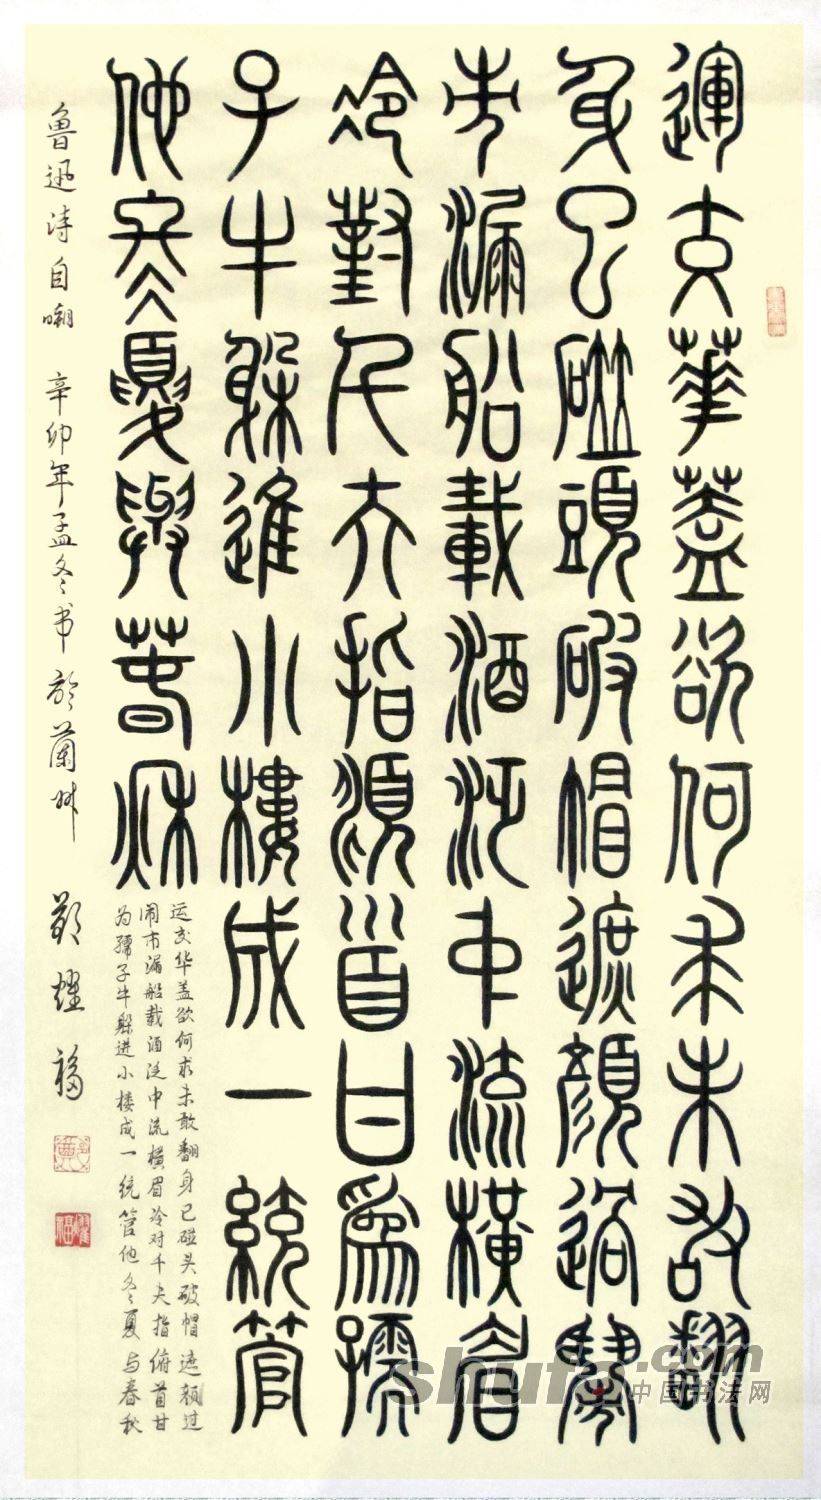 運交華蓋欲何求未敢翻
身已碰頭破帽遮顏過鬧
市漏船載酒泛中流橫眉
冷對千夫指頫首甘為孺
子牛躲進小樓成一統管
他冬夏與春秋
运交华盖欲何求未敢翻身已碰头破帽遮颜过
闹市漏船载酒泛中流横眉冷对千夫指俯首甘
为孺子牛躲进小楼成一统管他冬夏与春秋
鲁迅诗自嘲 辛卯年孟冬书於蘭州 耀福
耀福
shufa.com
中国书法网